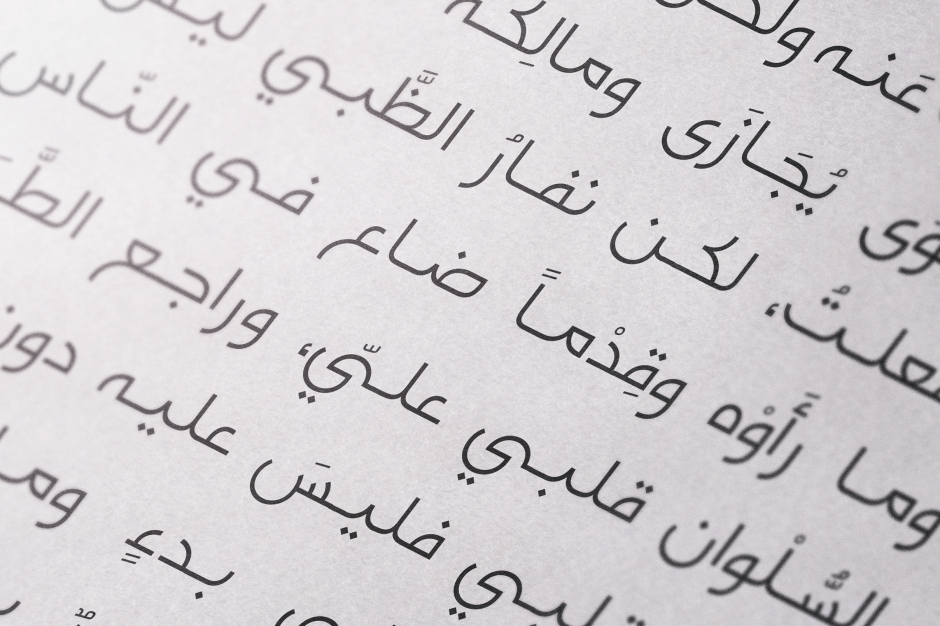 عَنه ولكن
يُجَازَى ومالكه
لكن نفارُ الظَّبي ليس
وما رأَوْه وقِدْماً ضاع في النّاس
السُّلوان قلبي عليّ، وراجع
قلبي فليسَ عليه دون
بدءٍ وما